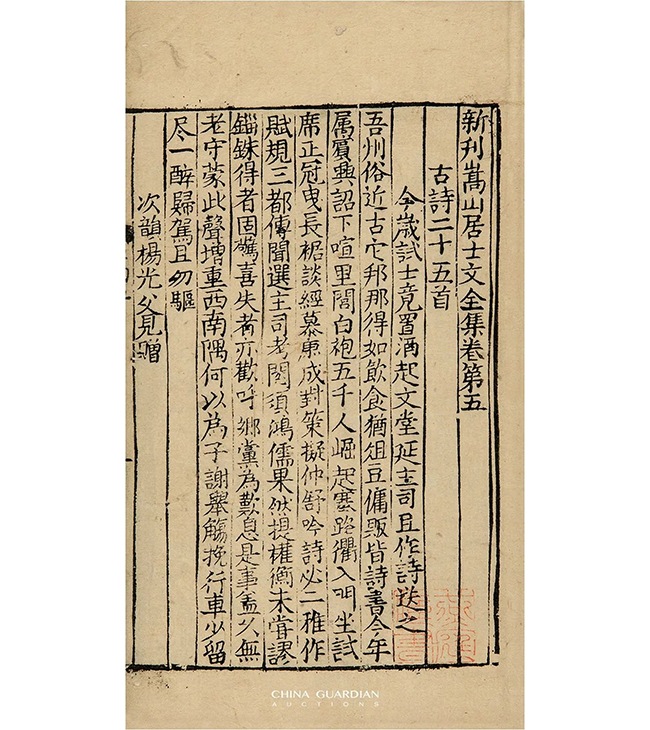 新刊嵩山居士文全集卷第五
古詩二十五首
今歲試士竟置酒起文堂延主司且作詩送之
吾州俗近古它邦那得如飲食猶俎豆傭販皆詩書今年
属賓興詔下喧里閭白袍五千人崛起塞路衢入門坐試
席正冠曳長裾談經慕康成對策擬仲舒吟詩必二雅作
賦規三都傳聞選主司考閱須鴻儒果然提權衡未嘗謬
錙銖得者固驚喜失者亦歡呼鄉黨為歎息是事盖以無
老守蒙此聲增重西南隅何以為子謝舉觴挽行車少留
尽一醉歸駕且勿驅
次韻楊光父見贈
CHINA GUARDIAN
AUCTIONS